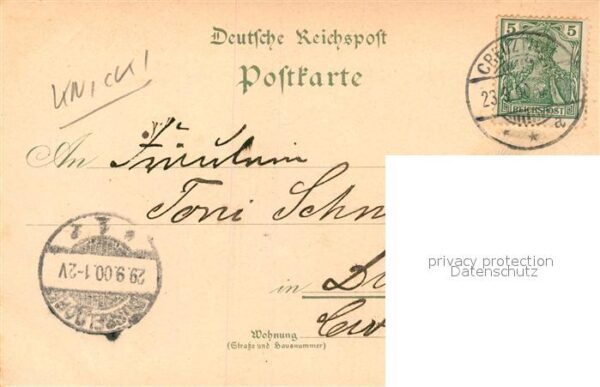 Deutsche Reichspost
Postkarte
KNICK!
5 5
REICHSPOST
23.
a
An Fräulein
Toni Schn
privacy protection
Datenschutz
29.9.00.1-2V
in
Wohnung
(Straße und Hausnummer)